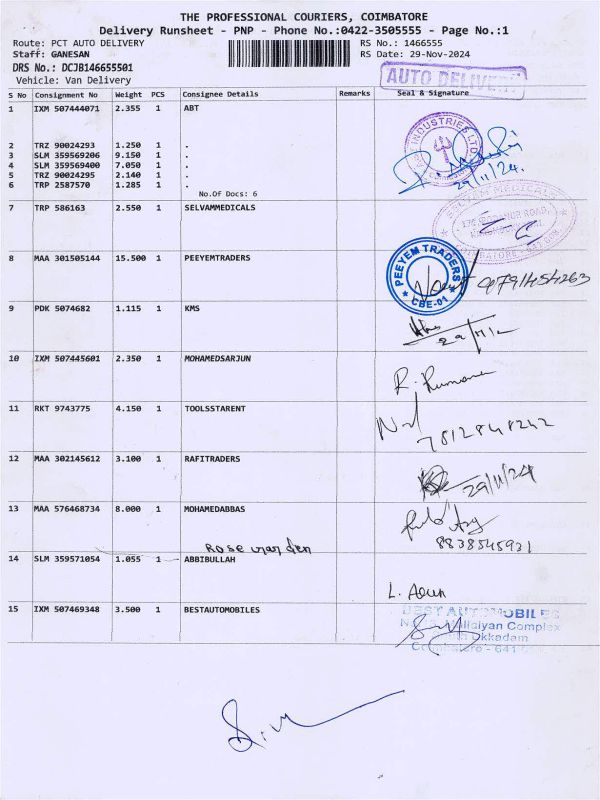 THE PROFESSIONAL COURIERS, COIMBATORE
Delivery Runsheet - PNP - Phone No.:0422-3505555 - Page No.:1
Route: PCT AUTO DELIVERY RS No.: 1466555
Staff: GANESAN RS Date: 29-Nov-2024
DRS No.: DCJB146655501
Vehicle: Van Delivery
AUTO DELIVERY
S No Consignment No Weight PCS Consignee Details Remarks Seal & Signature
1 IXM 507444071 2.355 1 ABT
2 TRZ 90024293 1.250 1 .
3 SLM 359569206 9.150 1 .
4 SLM 359569400 7.050 1 .
5 TRZ 90024295 2.140 1 .
6 TRP 2587570 1.285 1 .
INDUSTRIES LTD
29/11/24.
No.Of Docs: 6
7 TRP 586163 2.550 1 SELVAMMEDICALS
MEDICALS
8 MAA 301505144 15.500 1 PEEYEMTRADERS
PEEYEM TRADERS
CBE-01
9791454263
9 PDK 5074682 1.115 1 KMS
10 IXM 507445601 2.350 1 MOHAMEDSARJUN
11 RKT 9743775 4.150 1 TOOLSSTARENT
7812848242
12 MAA 302145612 3.100 1 RAFITRADERS
29/11/24
13 MAA 576468734 8.000 1 MOHAMEDABBAS
8838545931
14 SLM 359571054 1.055 1 ABBIBULLAH
15 IXM 507469348 3.500 1 BESTAUTOMOBILES
BEST AUTOMOBILES
Complex
Ukkadam
Coimbatore - 641